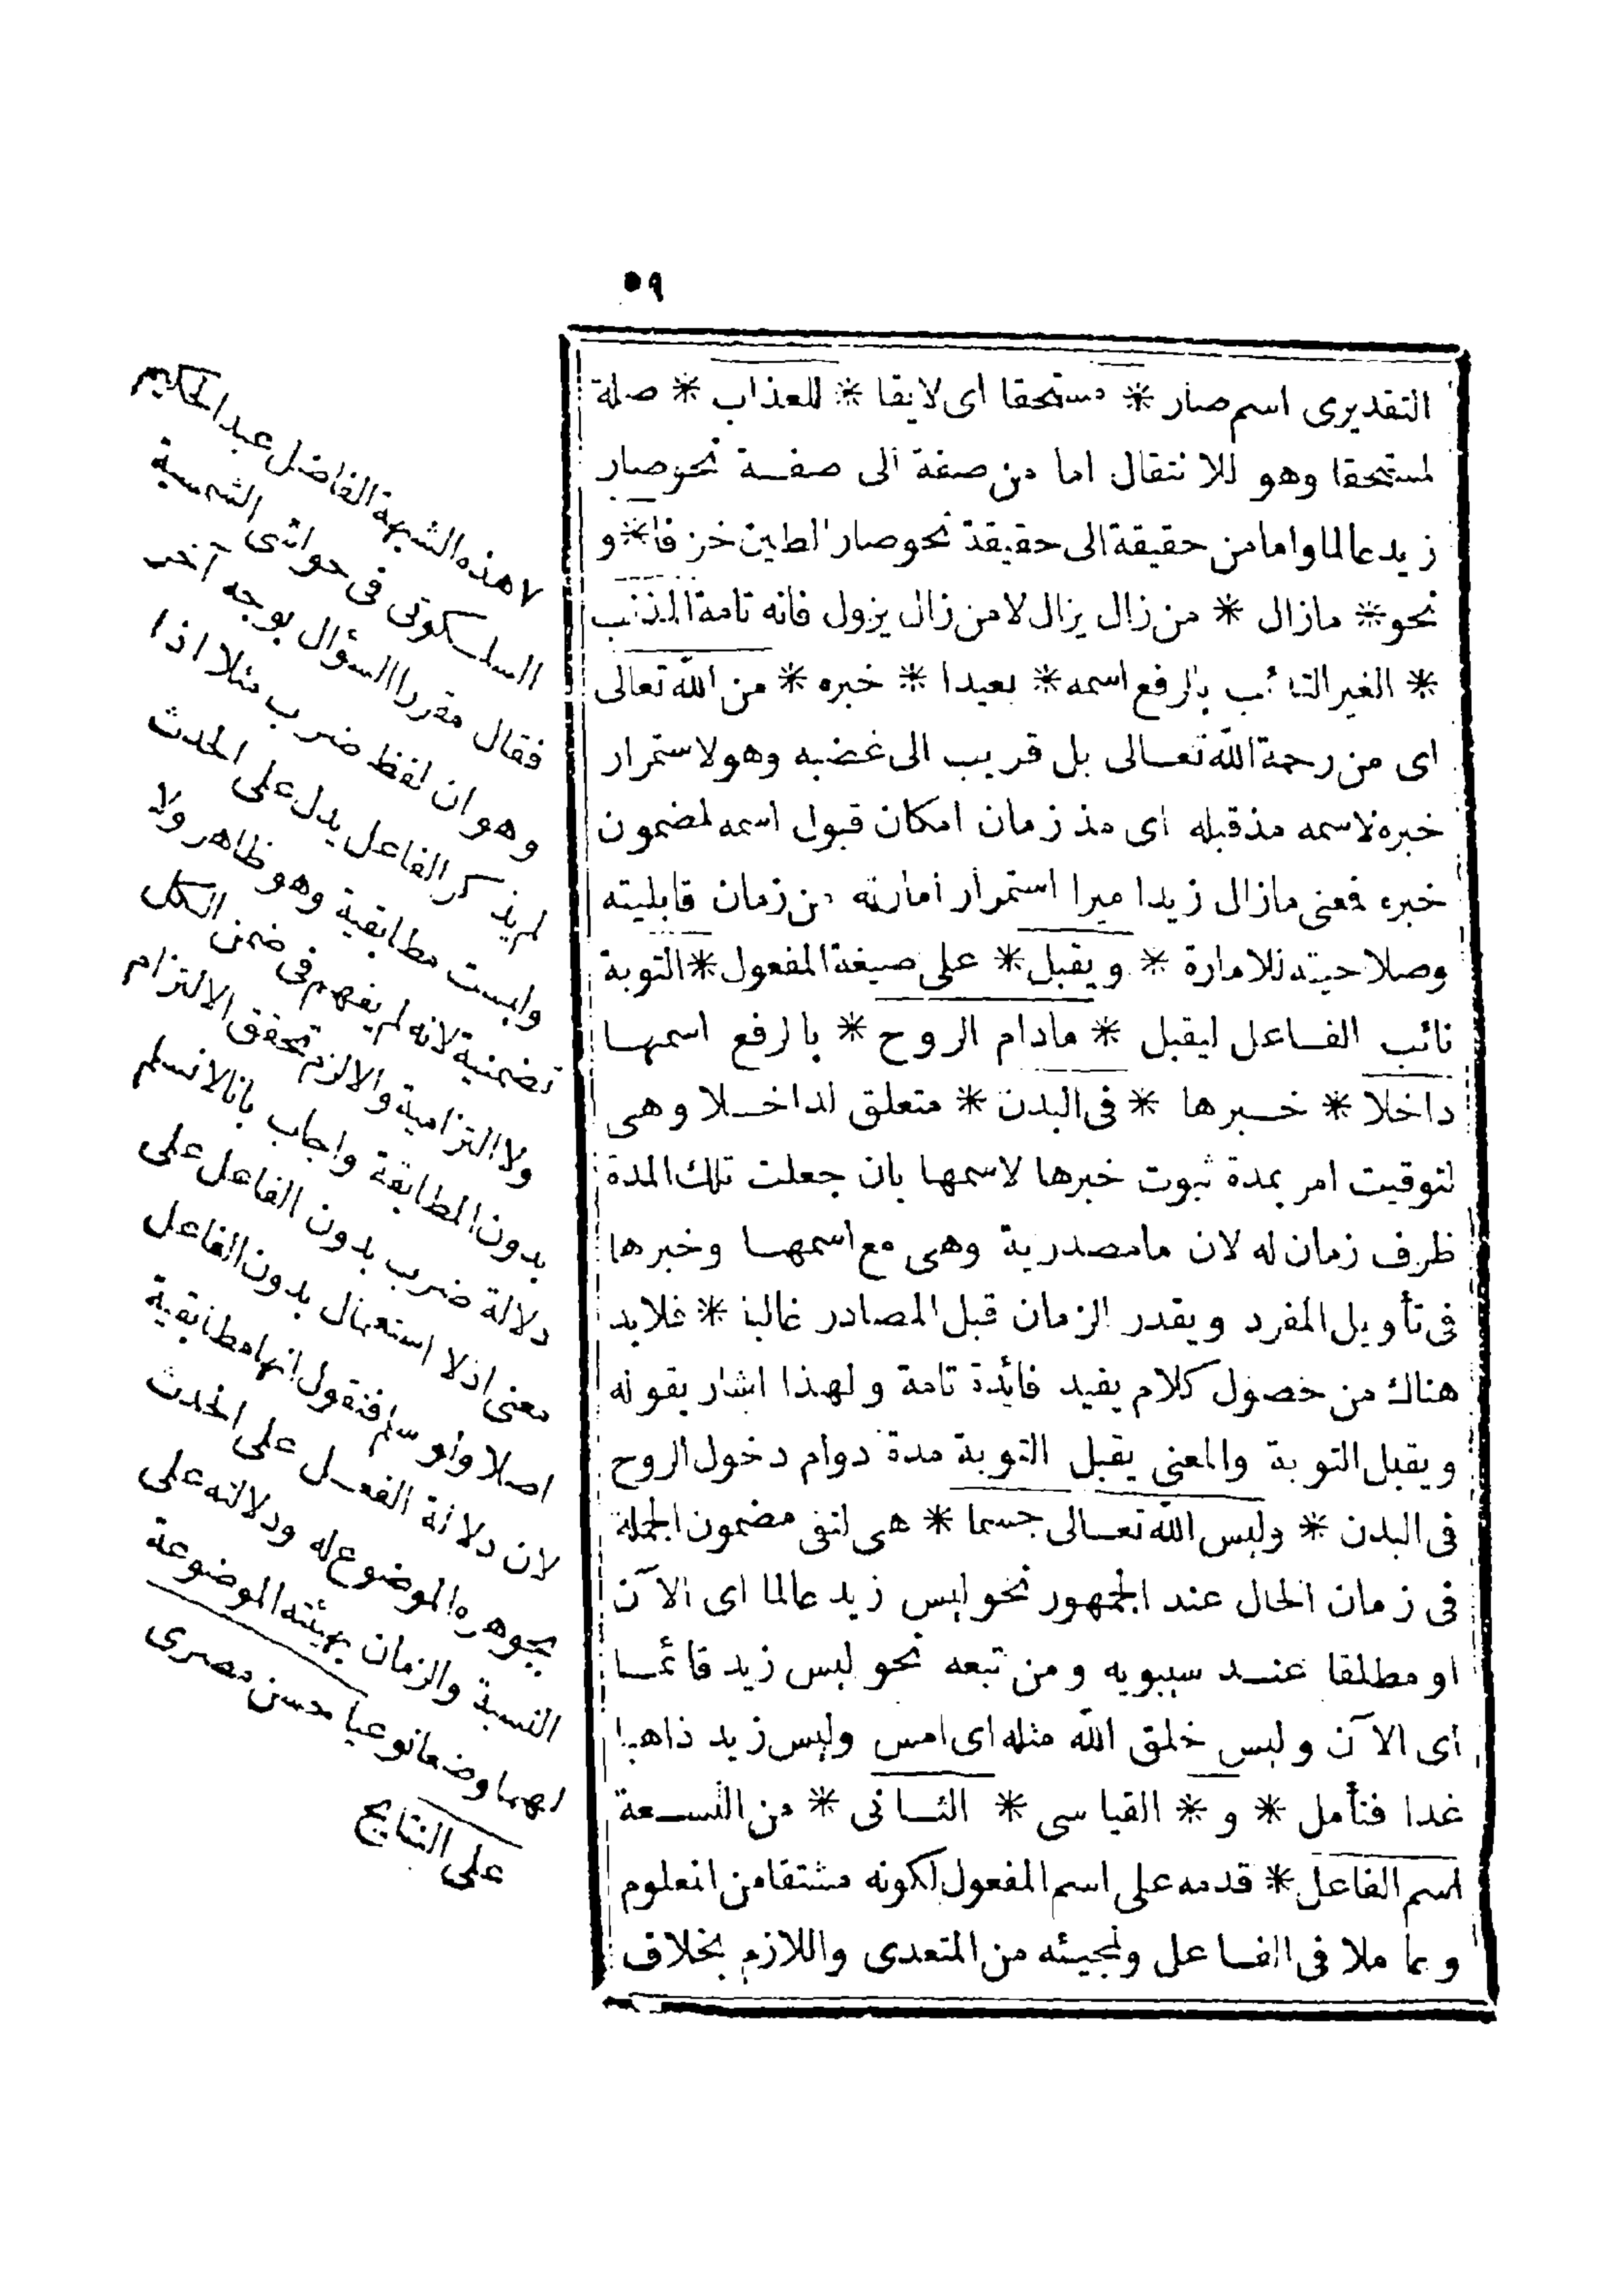 ٥٩
التقديرى اسم صار * مستحقا اى لايقا * للعذاب * صلة
لمستحقا وهو للانتقال اما من صفة الى صفة نحو صار
زيد عالما واما من حقيقة الى حقيقة نحو صار الطين خزفا * و
نحو * مازال * من زال يزال لا من زال يزول فانه تامة المذنب
* الغير التائب بالرفع اسمه * بعيدا * خبره * من الله تعالى
اى من رحمة الله تعالى بل قريب الى غضبه وهو لاستمرار
خبره لاسمه مذ قبله اى مذ زمان امكان قبول اسمه لمضمون
خبره فعنى مازال زيدا ميرا استمرار امارته من زمان قابليته
وصلاحيته للامارة * ويقبل * على صيغة المفعول * التوبة
نائب الفاعل ليقبل * مادام الروح * بالرفع اسمها
داخلا * خبرها * فى البدن * متعلق لداخلا وهى
لتوقيت امر بمدة ثبوت خبرها لاسمها بان جعلت تلك المدة
ظرف زمان له لان مامصدرية وهى مع اسمها وخبرها
فى تأويل المفرد ويقدر الزمان قبل المصادر غالبا * فلابد
هناك من حصول كلام يفيد فائدة تامة ولهذا اشار بقوله
ويقبل التوبة والمعنى يقبل التوبة مدة دوام دخول الروح
فى البدن * وليس الله تعالى جسما * هى لنفى مضمون الجملة
فى زمان الحال عند الجمهور نحو ليس زيد عالما اى الآن
او مطلقا عند سيبويه ومن تبعه نحو ليس زيد قائما
اى الآن وليس خلق الله مثله اى امس وليس زيد ذاهبا
غدا فتأمل * و * القياسى * الثانى * من التسعة
اسم الفاعل * قدمه على اسم المفعول لكونه مشتقا من المعلوم
وعاملا فى الفاعل ولمجيئه من المتعدى واللازم بخلاف
٧ هذه الشبهة الفاضل عبد الحكيم
السلسكوتى فى حواشى الشمسية
فقال مقررا السؤال بوجه آخر
وهو ان لفظ ضرب مثلا اذا
لم يذكر الفاعل يدل على الحدث
وليست مطابقية وهو ظاهر ولا
تضمنية لانه لم يفهم فى ضمن الكل
ولا التزامية والا لزم تحقق الالتزام
بدون المطابقة واجاب بانا لا نسلم
دلالة ضرب بدون الفاعل على
معنى اذ لا استعمال بدون الفاعل
اصلا ولو سلم فنقول انها مطابقية
لان دلالة الفعل على الحدث
بجوهره الموضوع له ودلالته على
النسبة والزمان بهيئته الموضوعة
لهما وضعا نوعيا حسن مصرى
على النتايج